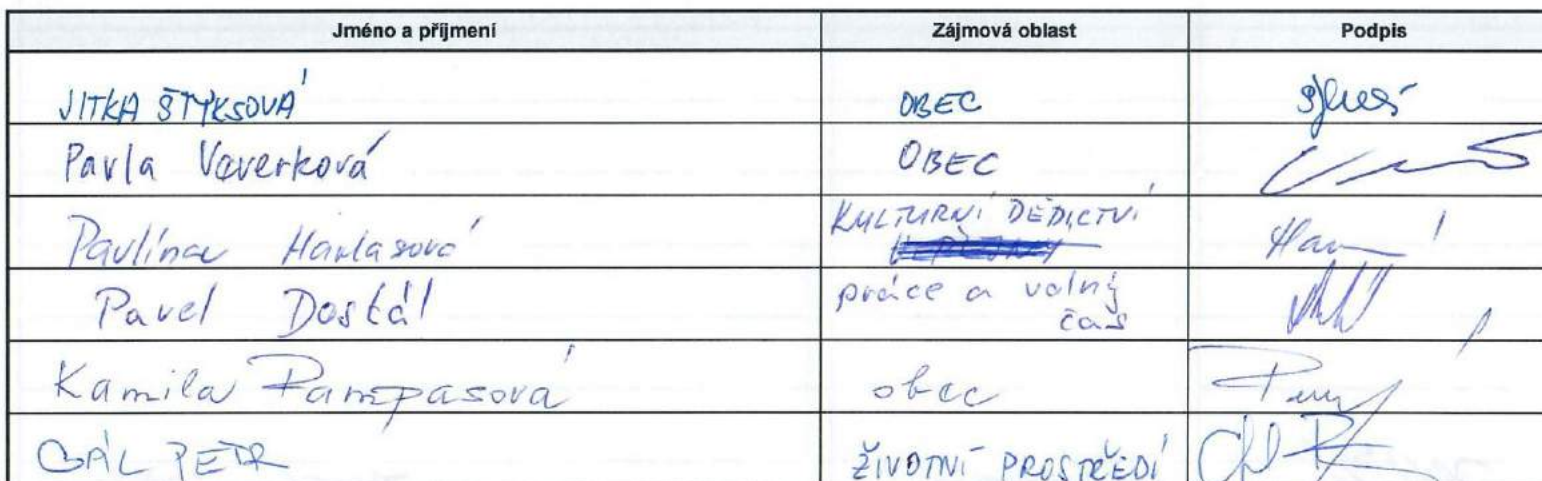 Jméno a příjmení Zájmová oblast Podpis
JITKA ŠTYKSOVÁ OBEC
Pavla Vaverková OBEC
Pavlína Harlasová KULTURNÍ DĚDICTVÍ
Pavel Dostál práce a volný
čas
Kamila Pampasová obec
GÁL PETR ŽIVOTNÍ PROSTŘEDÍ